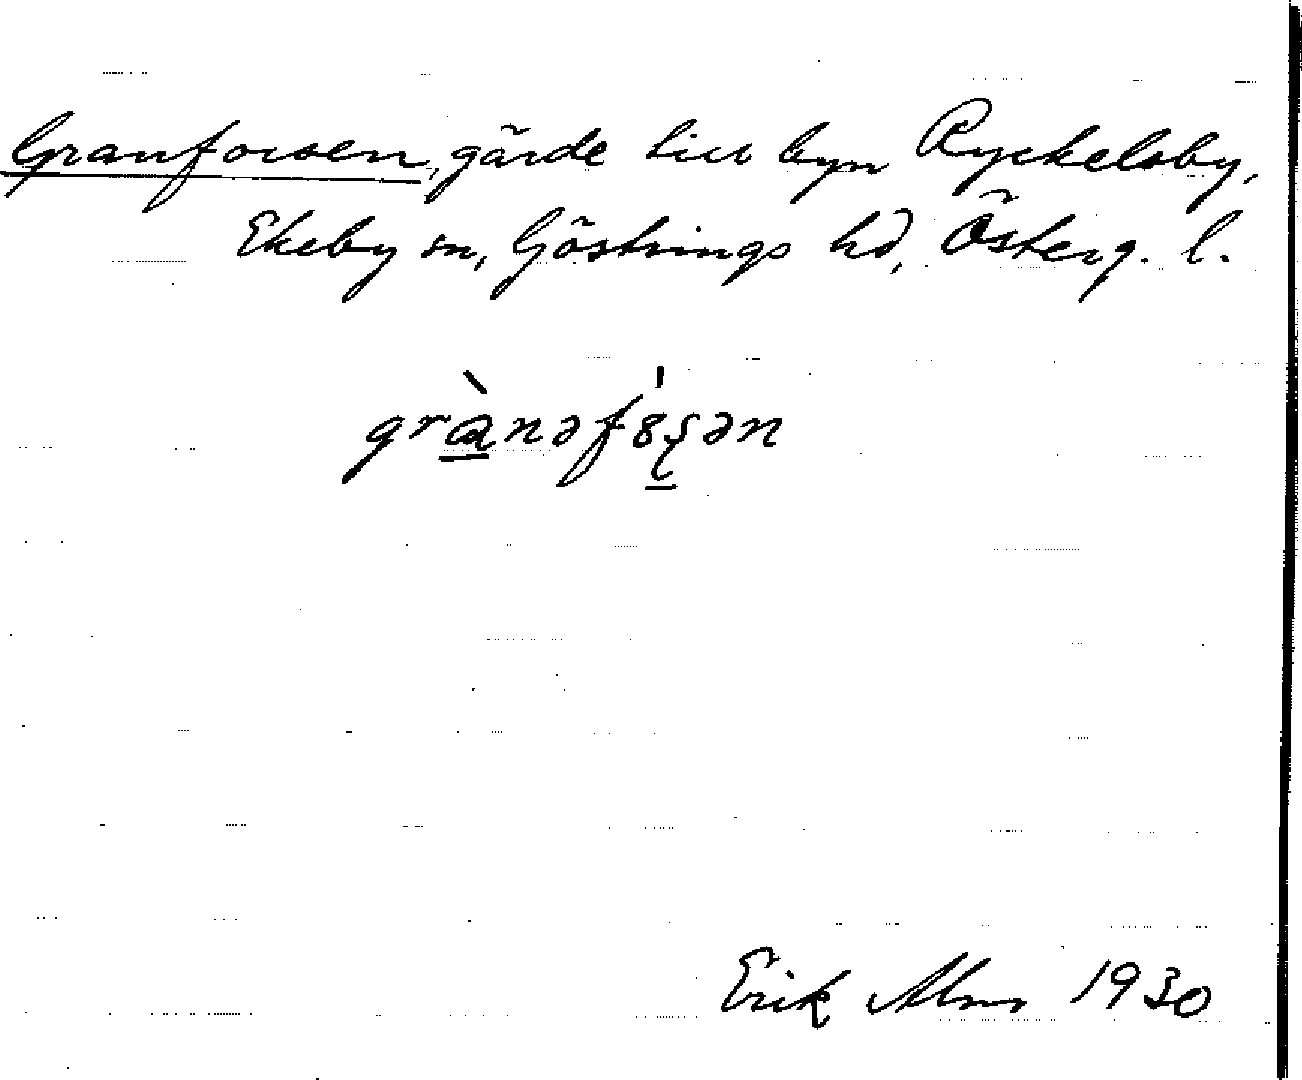 Granforsen, gärde till byn Ryckelsby,
Ekeby sn, Göstrings hd, Österg. l.
grànəfȣ́ʂən
Erik Alm 1930